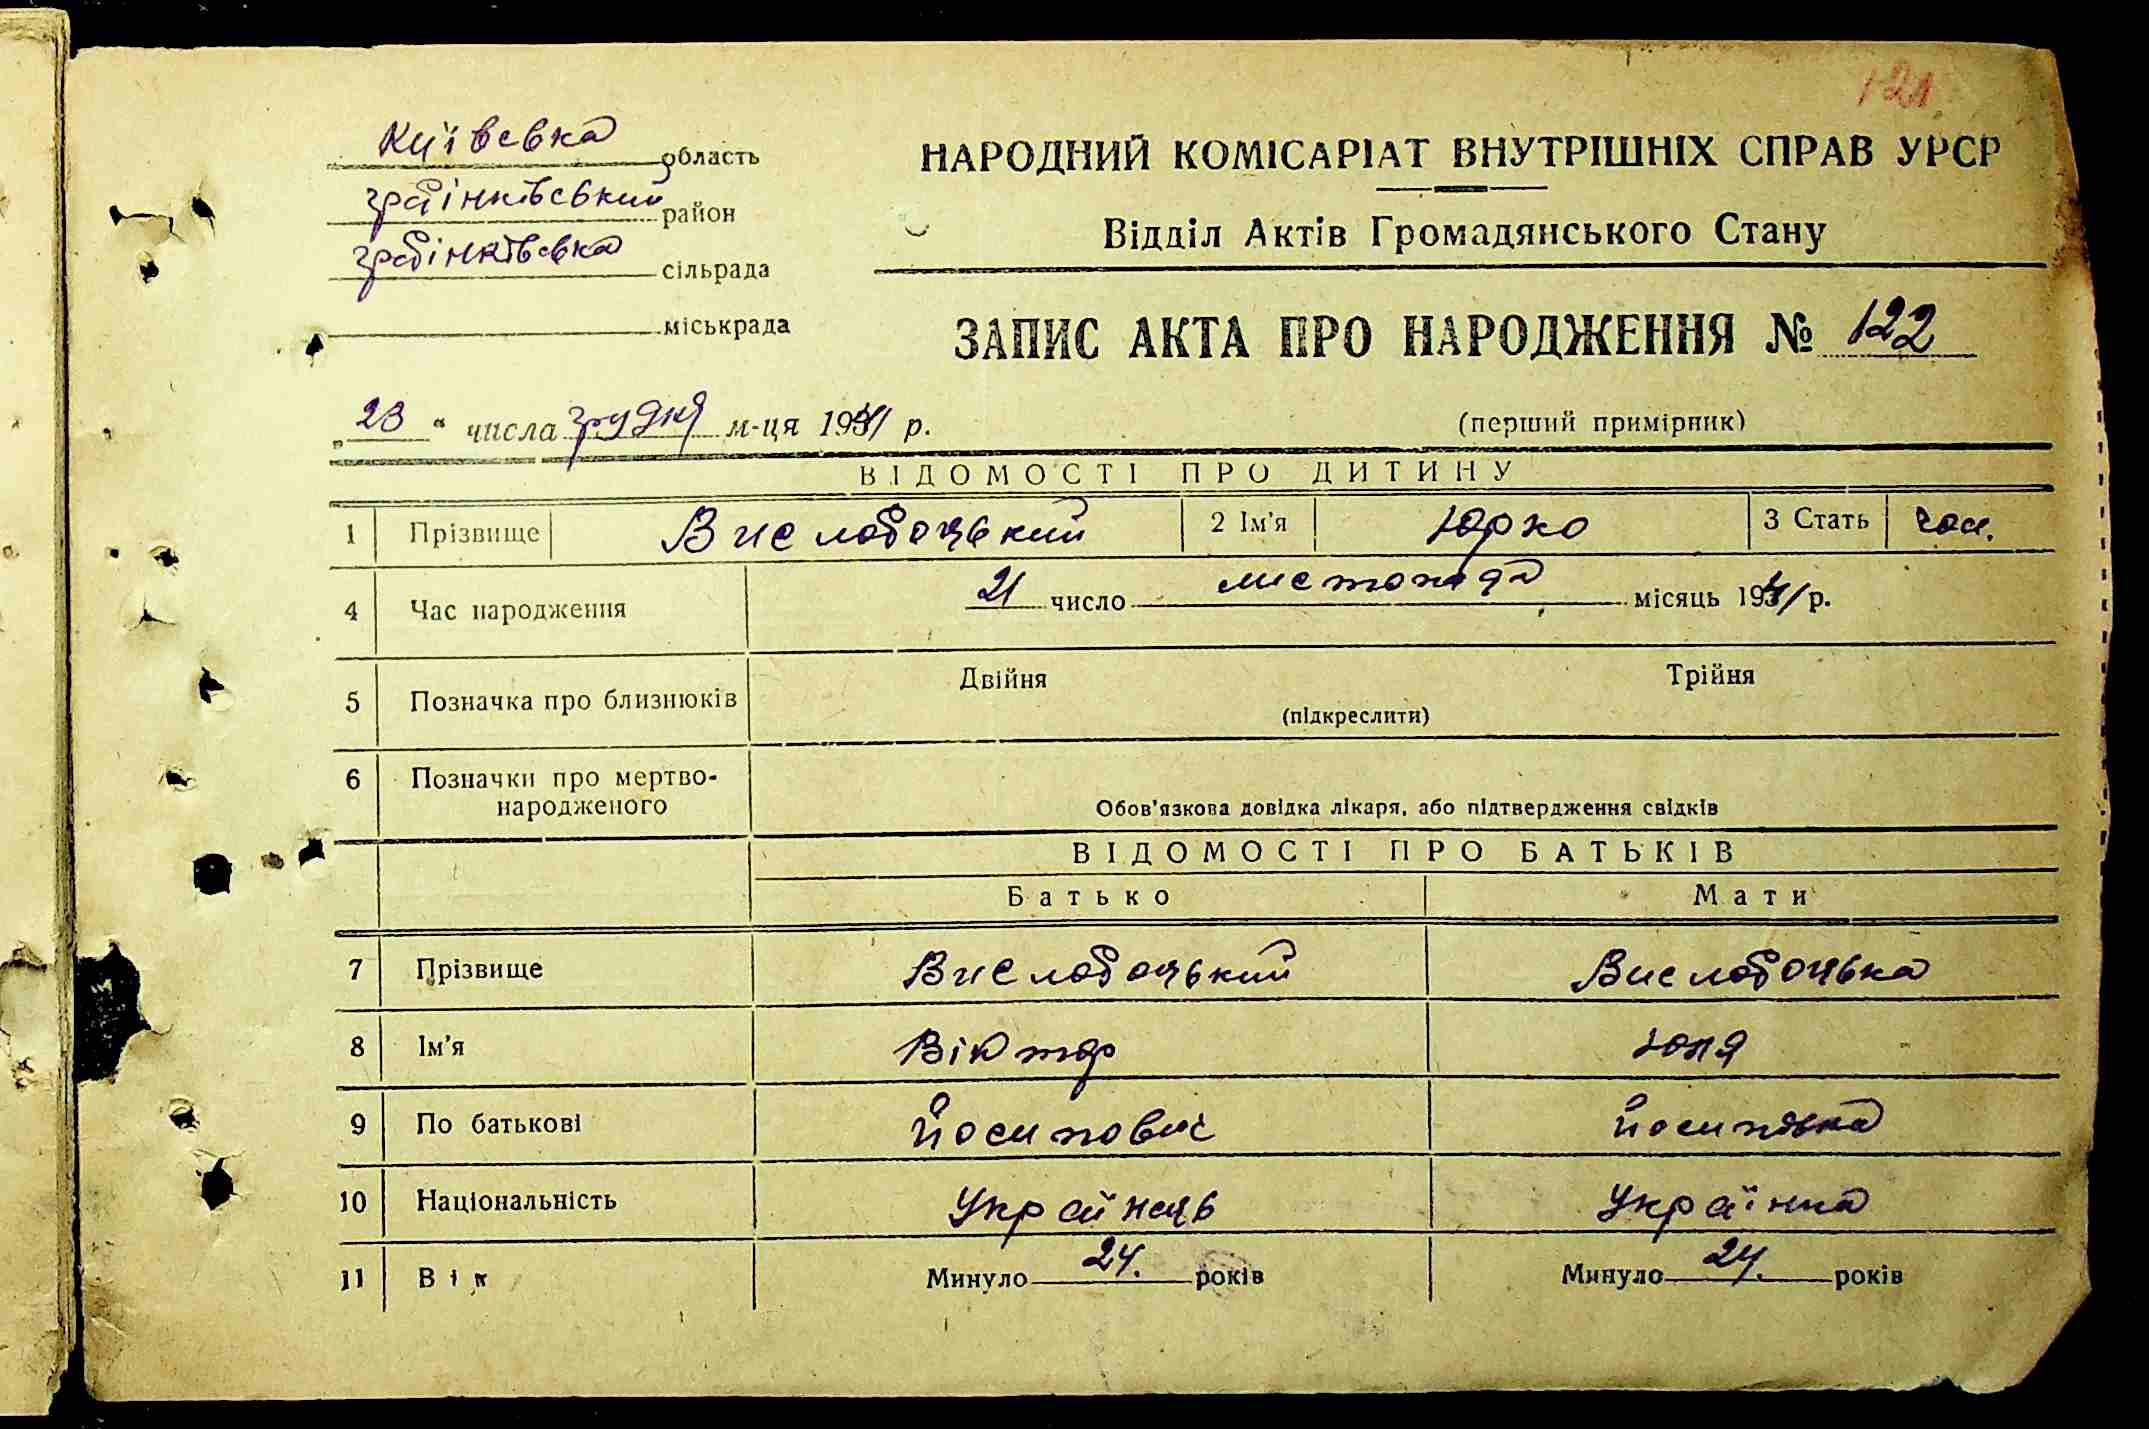 121
Київська область
гребінківський район
гребінківська сільрада
міськрада
НАРОДНИЙ КОМІСАРІАТ ВНУТРІШНІХ СПРАВ УРСР
Відділ Актів Громадянського Стану
ЗАПИС АКТА ПРО НАРОДЖЕННЯ № 122
(перший примірник)
„23“ числа грудня м-ця 1941 р.
ВІДОМОСТІ ПРО ДИТИНУ
1 Прізвище Вислободський 2 Ім'я Юрко 3 Стать чол.
4 Час народження 21 число листопада місяць 1941 р.
5 Позначка про близнюків Двійня Трійня
(підкреслити)
6 Позначки про мертво-
народженого
Обов'язкова довідка лікаря, або підтвердження свідків
ВІДОМОСТІ ПРО БАТЬКІВ
Батько Мати
7 Прізвище Вислобоцький Вислобоцька
8 Ім'я Віктор Юля
9 По батькові Йосипович Йосипівна
10 Національність Українець Українка
11 Вік Минуло 24. років Минуло 24. років